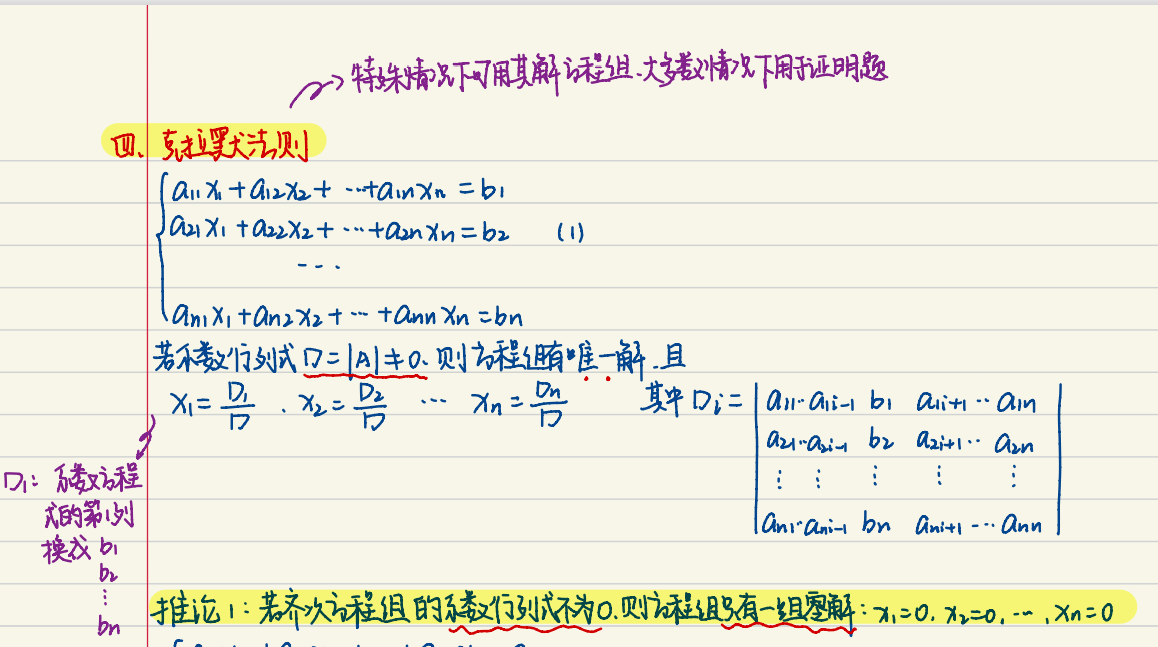 特殊情况下可用其解方程组、大多数情况下用于证明题
四、克拉默法则
a₁₁x₁+a₁₂x₂+ ⋯+a₁ₙxₙ=b₁
a₂₁x₁+a₂₂x₂+⋯+a₂ₙxₙ=b₂ (1)
⋯
aₙ₁x₁+aₙ₂x₂+⋯+aₙₙxₙ=bₙ
若系数行列式D=|A|≠0.则方程组有唯一解.且
x₁=D₁/D、x₂=D₂/D ⋯ xₙ=Dₙ/D 其中Dᵢ=
a₁₁⋯a₁ᵢ₋₁ b₁ a₁ᵢ₊₁⋯a₁ₙ
a₂₁⋯a₂ᵢ₋₁ b₂ a₂ᵢ₊₁⋯a₂ₙ
⋮ ⋮ ⋮ ⋮ ⋮
aₙ₁⋯aₙᵢ₋₁ bₙ aₙᵢ₊₁⋯aₙₙ
D₁: 系数方程
式的第1列
换成 b₁
b₂
⋮
bₙ
推论1:若齐次方程组的系数行列式不为0.则方程组只有一组零解:x₁=0.x₂=0.⋯.xₙ=0